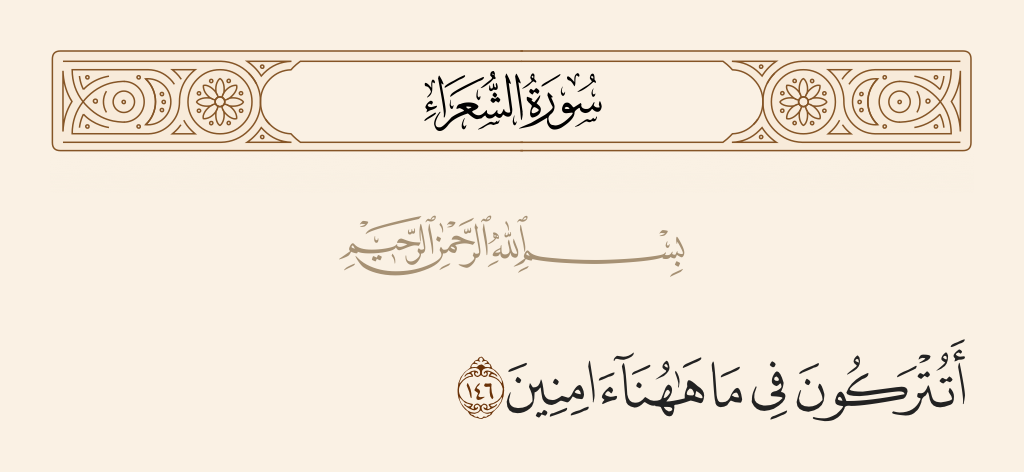 سُورَةُ الشُّعَرَاءِ
بِسْمِ ٱللَّهِ ٱلرَّحْمَٰنِ ٱلرَّحِيمِ
أَتُتْرَكُونَ فِى مَا هَٰهُنَآ ءَامِنِينَ ١٤٦